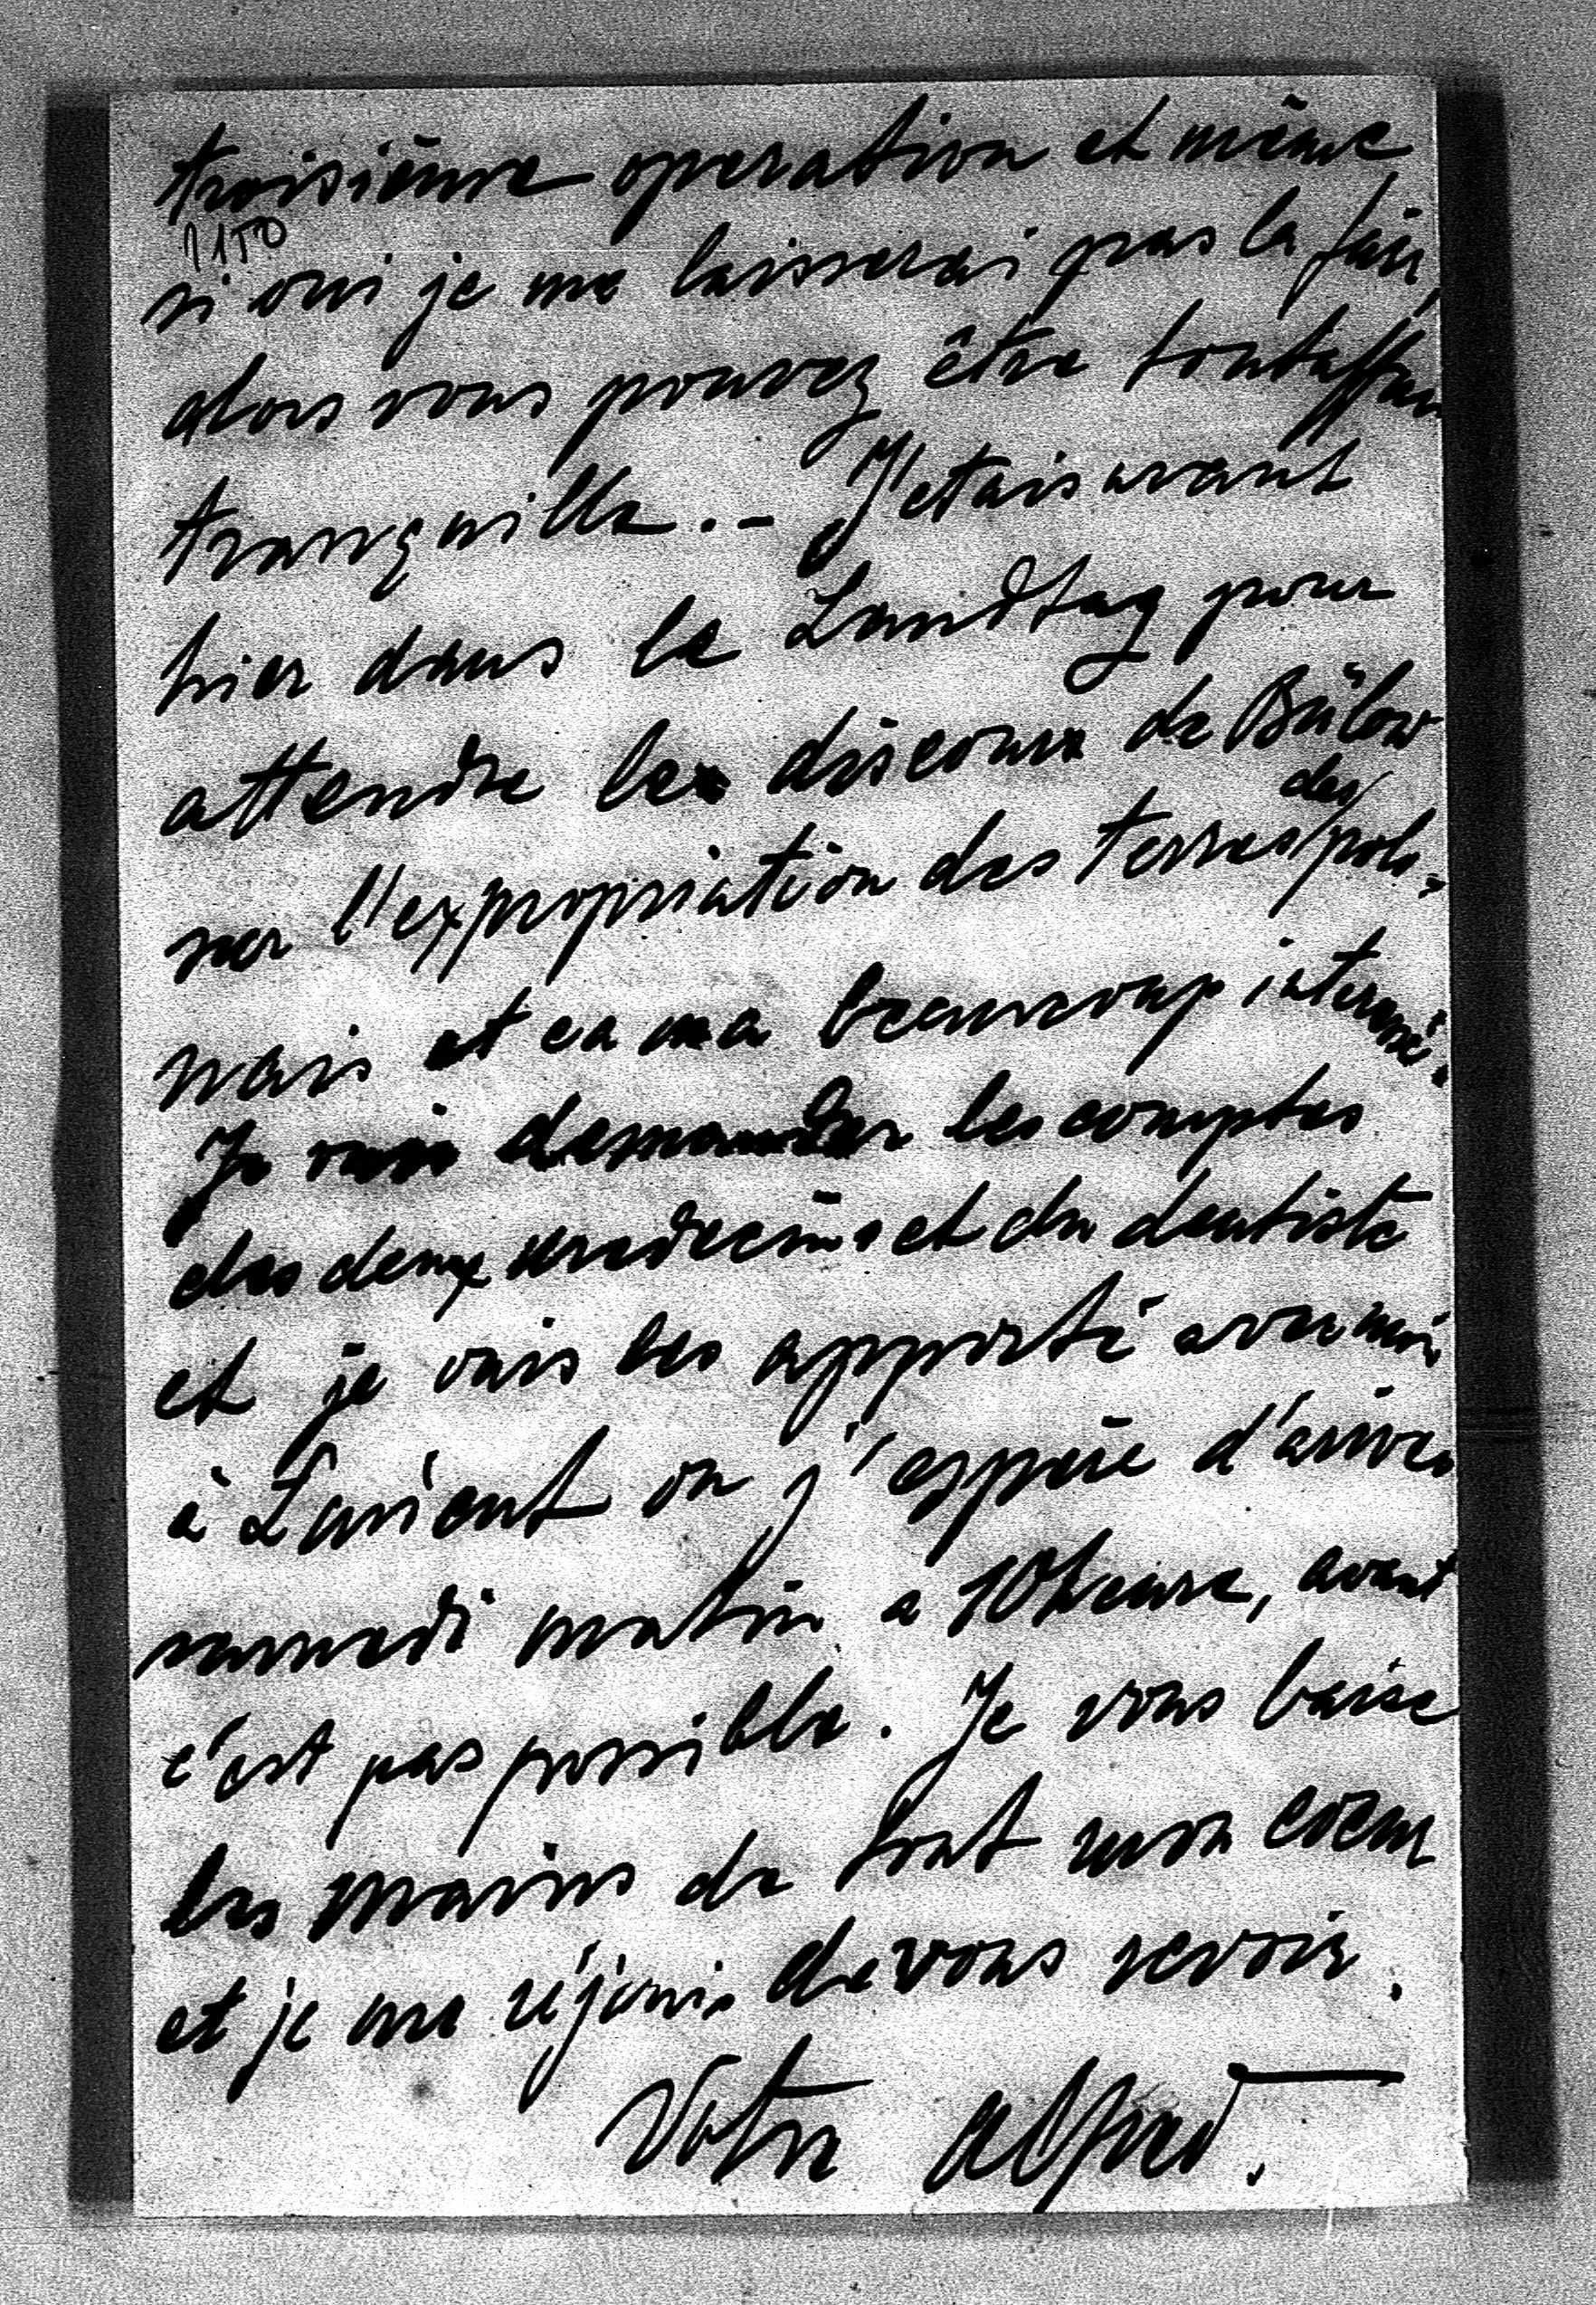 troisième operation et même
1150
si oui je me laisserai pas la fair,
alors vous pouvez être toutaffair
tranquille. - J'etais avant
hier dans le Landtag pour
attendre le discour de Bülow
sur l'expropriation des terres des polo-
nais et ca ma beaucoup interessé.
Je vais demander les comptes
des deux medecins et du dentiste
et je vais les apporté avec moi
à Lanient ou j'éspère d'ariver
samedi matin a 10 heure, avant
c'est pas possible. Je vous baise
les mains de tout mon coeur
et je me réjouis de vous revoir.
Votre Alfred.